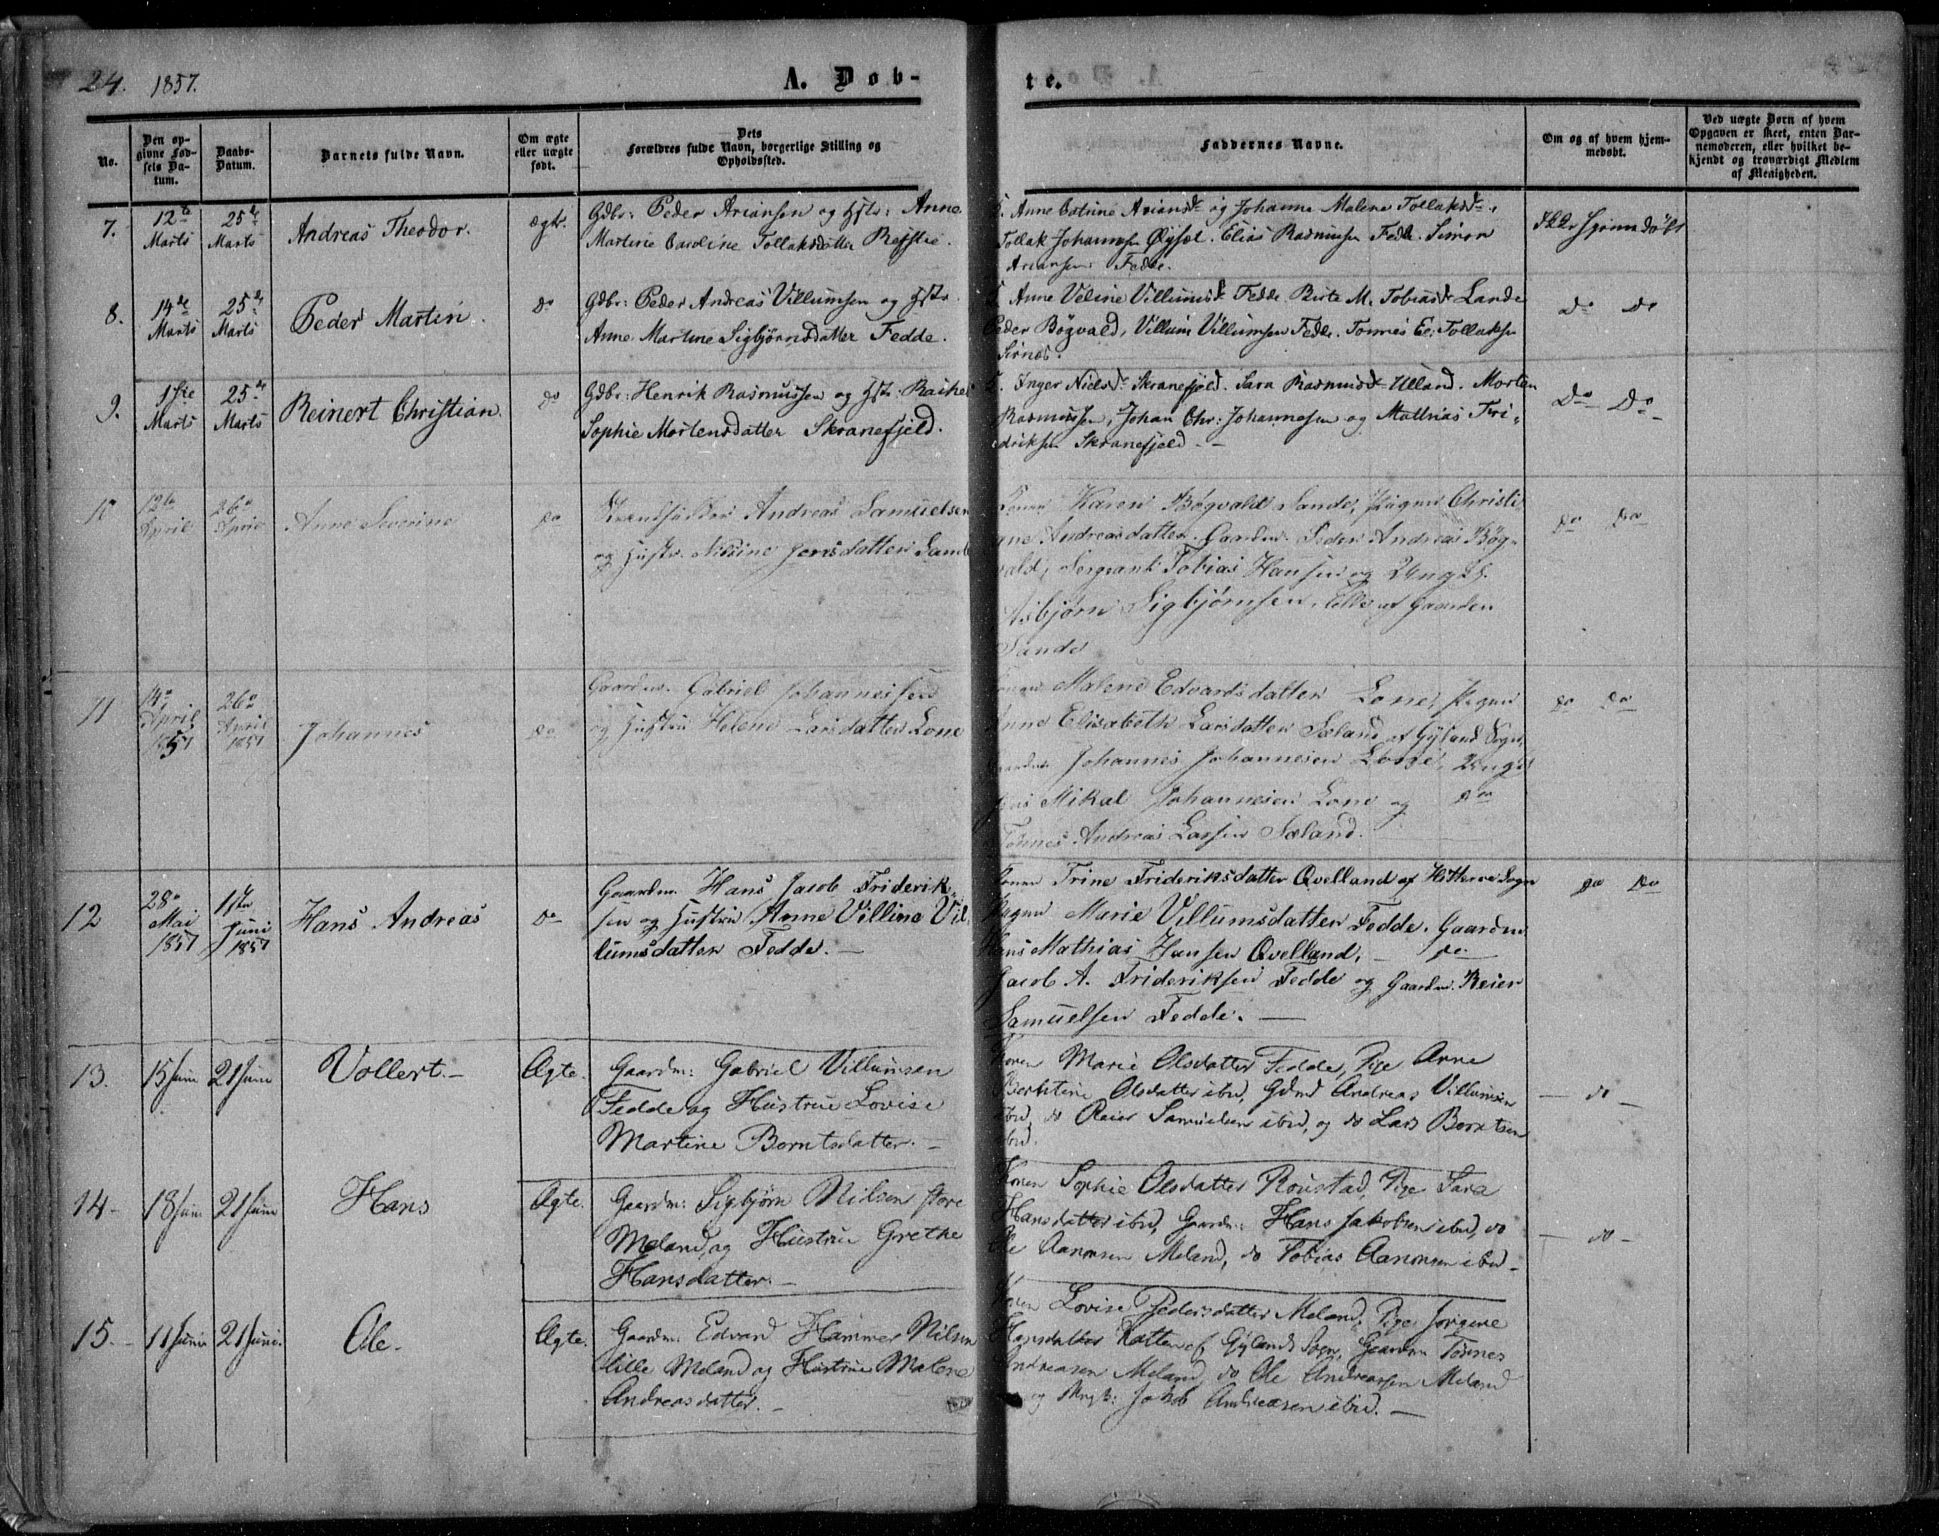 24. 1857.
A. Døb-
te.
No.
Den op-
givne Fød-
sels Da-
tum.
Daabs-
Datum.
Barnets fulde Navn.
Om ægte
eller uægte
født.
Dets
Forældres fulde Navn, borgerlige Stilling og
Opholdssted.
Faddernes Navne.
Om og af hvem hjem-
medøbt.
Ved uægte Børn af hvem
Opgaven er skeet, enten Bar-
nemoderen, eller hvilket be-
kjendt og troværdigt Medlem
af Menigheden.
7.
12te
Marts
25de
Marts
Andreas Theodor.
ægte.
Gdbr: Peder Ariansen og Hstr: Anne
Martine Caroline Tollaksdatter
Anne Catrine Ariansd. og Johanne Malene Tollaksd.,
Tollak Johannesen Øysæl. Elias Rasmussen Fedde. Simon
Ariansen Fedde.
Ikke hjemmedøbt
8.
14de
Marts
25de
Marts
Peder Martin.
Do
Gdbr: Peder Andreas Villumsen og Hstr.
Anne Martine Sigbjørnsdatter Fedde.
Anne Veline Villumsd. Fedde Berte M. Tobiasd. Lande
Peder Bøgvald, Villum Villumsen Fedde. Tonnes El. Tollaksen
Sirnæs.
Do Do
9.
1ste
Marts
25de
Marts
Reinert Christian.
Do
Gdbr: Henrik Rasmussen og Hstr: Rachel
Sophie Mortensdatter Skranefjeld.
Inger Nielsd. Skranefjeld. Sara Rasmusd. Ulland. Morten
Rasmussen, Johan Chr: Johannesen og Mathias Fri-
driksen Skranefjeld.
Do Do
10
12te
April
26de
April
Anne Severine
Do
Andreas Samuelsen
og Hustr. Nilsine Jensdatter Sande
Konen Karen Bøgvald Sande, Pigen Christi-
ne Andreasdatter. Gaardm. Peder Andreas Bøg-
vald, Sergeant Tobias Hansen og Ungk.
Asbjørn Sigbjørnsen, Alle af Gaarden
Sande
Do Do
11
14de
April
1857
26de
April
1857
Johannes
Do
Gaardm. Gabriel Johannessen
og Hustru Helene Larsdatter Lone
Konen Malene Edvardsdatter Lone, Pigen
Anne Elisabeth Larsdatter Sæland af Gyland Sogn,
Gaardm. Johannes Johannesen Lone, Ungk.
Mikal Johannesen Lone og Do
Tønnes Andreas Larsen Sæland.
Do Do
12
28de
Mai
1857
1ste
Juni
1857
Hans Andreas
Do
Gaardm. Hans Jacob Friderik-
sen og Hustru Anne Villine Vil-
lumsdatter Fedde. —
Konen Trine Frideriksdatter Qvelland af Hitterø Sogn
Pigen Marie Villumsdatter Fedde. Gaardm
Hans Mathias Hansen Qvelland, — Do
Jacob A. Frideriksen Fedde og Gaardm. Reier
Samuelsen Fedde. —
Do Do
13.
15 Juni
21 Juni
Vollert. —
Ægte.
Gaardm: Gabriel Villumsen
Fedde og Hustrue Lovise
Martine Berntsdatter. —
Konen Marie Olsdatter Fedde, Pige Anne
Berntine Olsdatter ibd, Gdmd Andreas Villumsen
ibd, do Reier Samuelsen ibd, og do Lars Berntsen
ibd.
— do —
14 -
18 Juni
21 Juni
Hans
Ægte.
Gaardm: Sigbjørn Nilsen store
Meland, og Hustrue Grethe
Hansdatter. —
Konen Sophie Olsdatter Roustad, Pige Sara
Hansdatter ibd, Gaardm: Hans Jakobsen ibd, do
Ole Aanonsen Meland, do Tobias Aanonsen ibd —
— do —
15. -
11 Juni
21 Juni.
Ole.
Ægte.
Gaardm: Edvard Hammer Nilsen
lille Meland og Hustrue Malene
Andreasdatter. —
Konen Lovise Pedersdatter Meland, Pige Jorgine
Hansdatter af Gylands Sogn, Gaardm Tønnes
Andreasen Meland, do Ole Andreassen Meland
og Ungk: Jakob Andreasen ibd. —